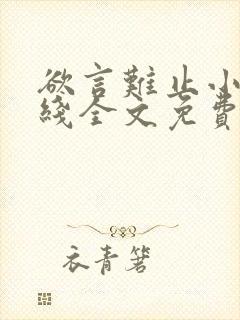 欲言難止小
綫全文免費
衣青箬